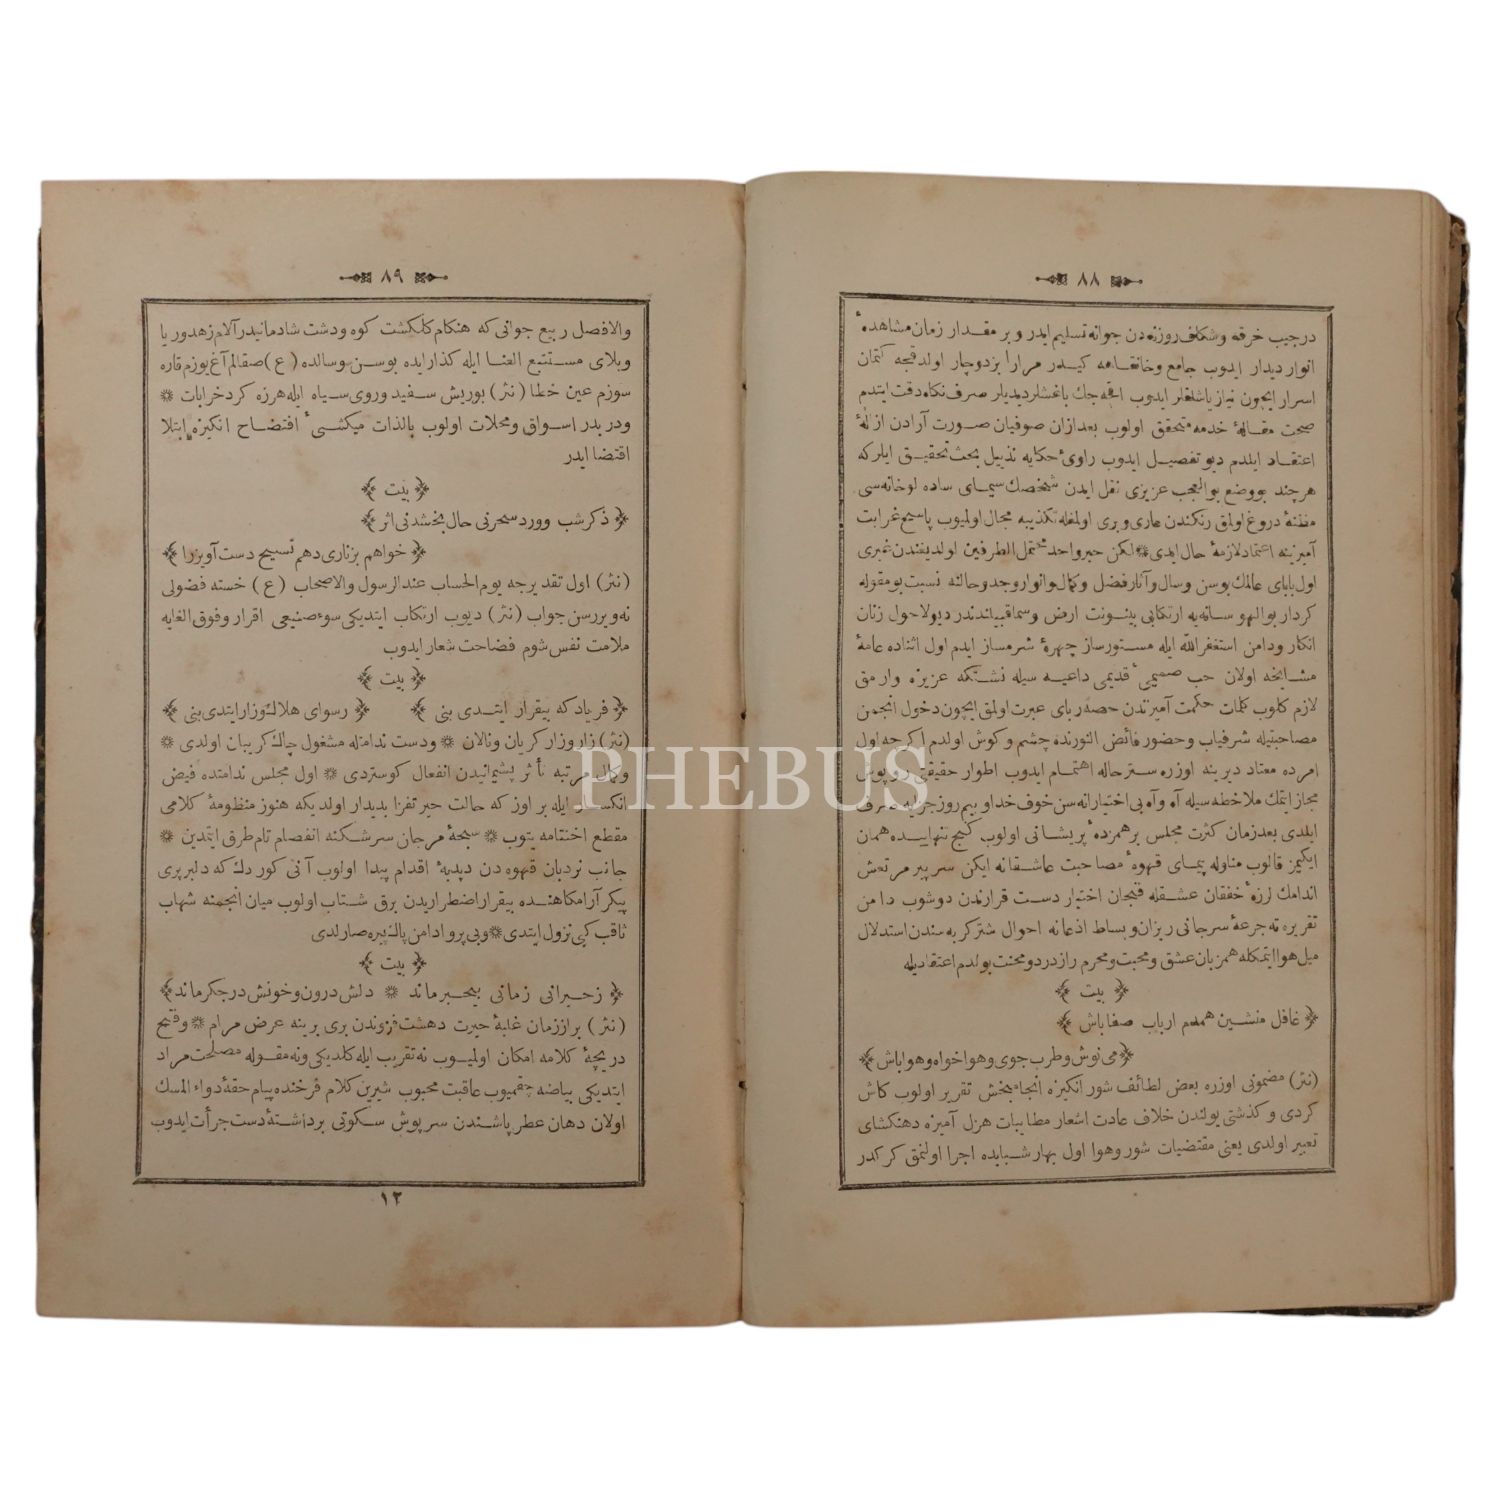 ٨٨
درجیب خرقه و شکاف روزنه‌دن جوانه تسلیم ایدر و بر مقدار زمان مشاهدهٔ
انوار دیدار ایدوب جامع و خانقاهه کیدر مرارا بزدوچار اولدقجه کتمان
اسرار ایچون نیاز یاشلغلر ایدوب اقجه جك باغشلر دیدیلر صرف نکاه دقت ایتدم
صحت مقالهٔ خدمه متحقق اولوب بعد ازان صوفیان صورت آرادن ازلهٔ
اعتقاد ایلدم دیو تفصیل ایدوب راویٔ حکایه تذییل بحث تحقیق ایلرکه
هر چند بو وضع بوالعجب عزیزی نقل ایدن شخصك سیمای ساده لوحانه‌سی
مظنهٔ دروغ اولمق رنکندن عاری و بری اولمغله تکذیبه مجال اولمیوب پاسیغ غرابت
آمیزینه اعتماد لازمهٔ حال ایدی * لکن خبر واحد محتمل الطرفین اولدیغندن غیری
اول بابای عالمك بو سن و سال و آثار فضل و کمال و انوار وجد و حالنه نسبت بو مقوله
کردار بوالهوسانه‌یه ارتکابی بینونت ارض و سما قبیلندندر دیو لاحول زنان
انکار و دامن استغفرالله ایله مستور ساز چهرهٔ شرمساز ایدم اول اثناده عامهٔ
مشایخه اولان حب صمیمیٔ قدیمی داعیه سیله نشتکه عزیزه وارمق
لازم کلوب کلمات حکمت آمیزندن حصه ربای عبرت اولمق ایچون دخول انجمن
مصاحبتیله شرفیاب و حضور فائض النورنده چشم و کوش اولدم اکرچه اول
امرده معتاد دیرینه اوزره ستر حاله اهتمام ایدوب اطوار حقیقتی روپوش
مجاز ایتمك ملاحظه سیله آه و آه بی اختیارانه سن خوف خدا و بیم روز جزایه صرف
ایلدی بعد زمان کثرت مجلس برهمزدهٔ پریشانی اولوب کنج تنهاییده همان
ایکیمز قالوب مناوله پیمای قهوهٔ مصاحبت عاشقانه ایکن سر پیر مرتعش
اندامك لرزهٔ خفقان عشقله فنجان اختیار دست قرارندن دوشوب دامن
تقریره ته جرعهٔ سرجانی ریزان و بساط اذعانه احوال شترکربه سندن استدلال
میل هوا ایتمکله همزبان عشق و محبت و محرم راز درد و محنت بولدم اعتقادیله
﴿ بیت ﴾
﴿ غافل منشین همدم ارباب صفا باش ﴾
﴿ می نوش و طرب جوی و هوا خواه و هوا باش ﴾
(نثر) مضمونی اوزره بعض لطائف شور انکیزه انجامبخش تقریر اولوب کاش
کردی و کذشتی یولندن خلاف عادت اشعار مطایبات هزل آمیزه دهنکشای
تعبیر اولدی یعنی مقتضیات شور و هوا اول بهار شبابده اجرا اولنمق کرکدر
٨٩
والا فصل ربیع جوانی که هنکام کلکشت کوه و دشت شادمانیدر آلام زهد و ریا
و بلای مستتبع العنا ایله کذار ایده بو سن و سالده (ع) صقالم آغ یوزم قاره
سوزم عین خطا (نثر) بو ریش سفید و روی سیاه ایله هرزه کرد خرابات *
و دربدر اسواق و محلات اولوب بالذات میکشیٔ افتضاح انکیزه ابتلا
اقتضا ایدر
﴿ بیت ﴾
﴿ ذکر شب و ورد سحرنی حال بخشدنی اثر ﴾
﴿ خواهم بزناری دهم تسبیح دست آویزرا ﴾
(نثر) اول تقدیرجه یوم الحساب عند الرسول والاصحاب (ع) خسته فضولی
نه ویررسن جواب (نثر) دیوب ارتکاب ایتدیکی سوء صنیعی اقرار و فوق الغایه
ملامت نفس شوم فضاحت شعار ایدوب
﴿ بیت ﴾
﴿ فریاد که بیقرار ایتدی بنی ﴾ ﴿ رسوای هلاك و زار ایتدی بنی ﴾
(نثر) زار و زار کریان و نالان * و دست ندامتله مشغول چاك کریبان اولدی *
و کمال مرتبه تأثر پشیمانیدن انفعال کوستردی * اول مجلس ندامتده فیض
انکسار ایله بر اوز که حالت حیرتفزا پدیدار اولدیکه هنوز منظومهٔ کلامی
مقطع اختتامه یتوب * سبحهٔ مرجان سرشکنه انفصام تام طرق ایتمدین *
جانب نردبان قهوه‌دن دبدبهٔ اقدام پیدا اولوب آنی کوردك که دلبر پری
پیکر آرامکاهنده بیقرار اضطرار یدن برق شتاب اولوب میان انجمنه شهاب
ثاقب کبی نزول ایتدی * و بی پروا دامن پاك پیره صارلدی
﴿ بیت ﴾
﴿ زحیرانی زمانی بیخبر ماند * دلش درون و خونش در جکر ماند ﴾
(نثر) بر از زمان غلبهٔ حیرت دهشتفزوندن بری برینه عرض مرام * و فتح
دریچهٔ کلامه امکان اولمیوب نه تقریب ایله کلدیکی و نه مقوله مصلحت مراد
ایتدیکی بیاضه چقمیوب عاقبت محبوب شیرین کلام فرخنده پیام حقهٔ دواء المسك
اولان دهان عطر پاشندن سرپوش سکوتی برداشتهٔ دست جرأت ایدوب
١٢
PHEBUS